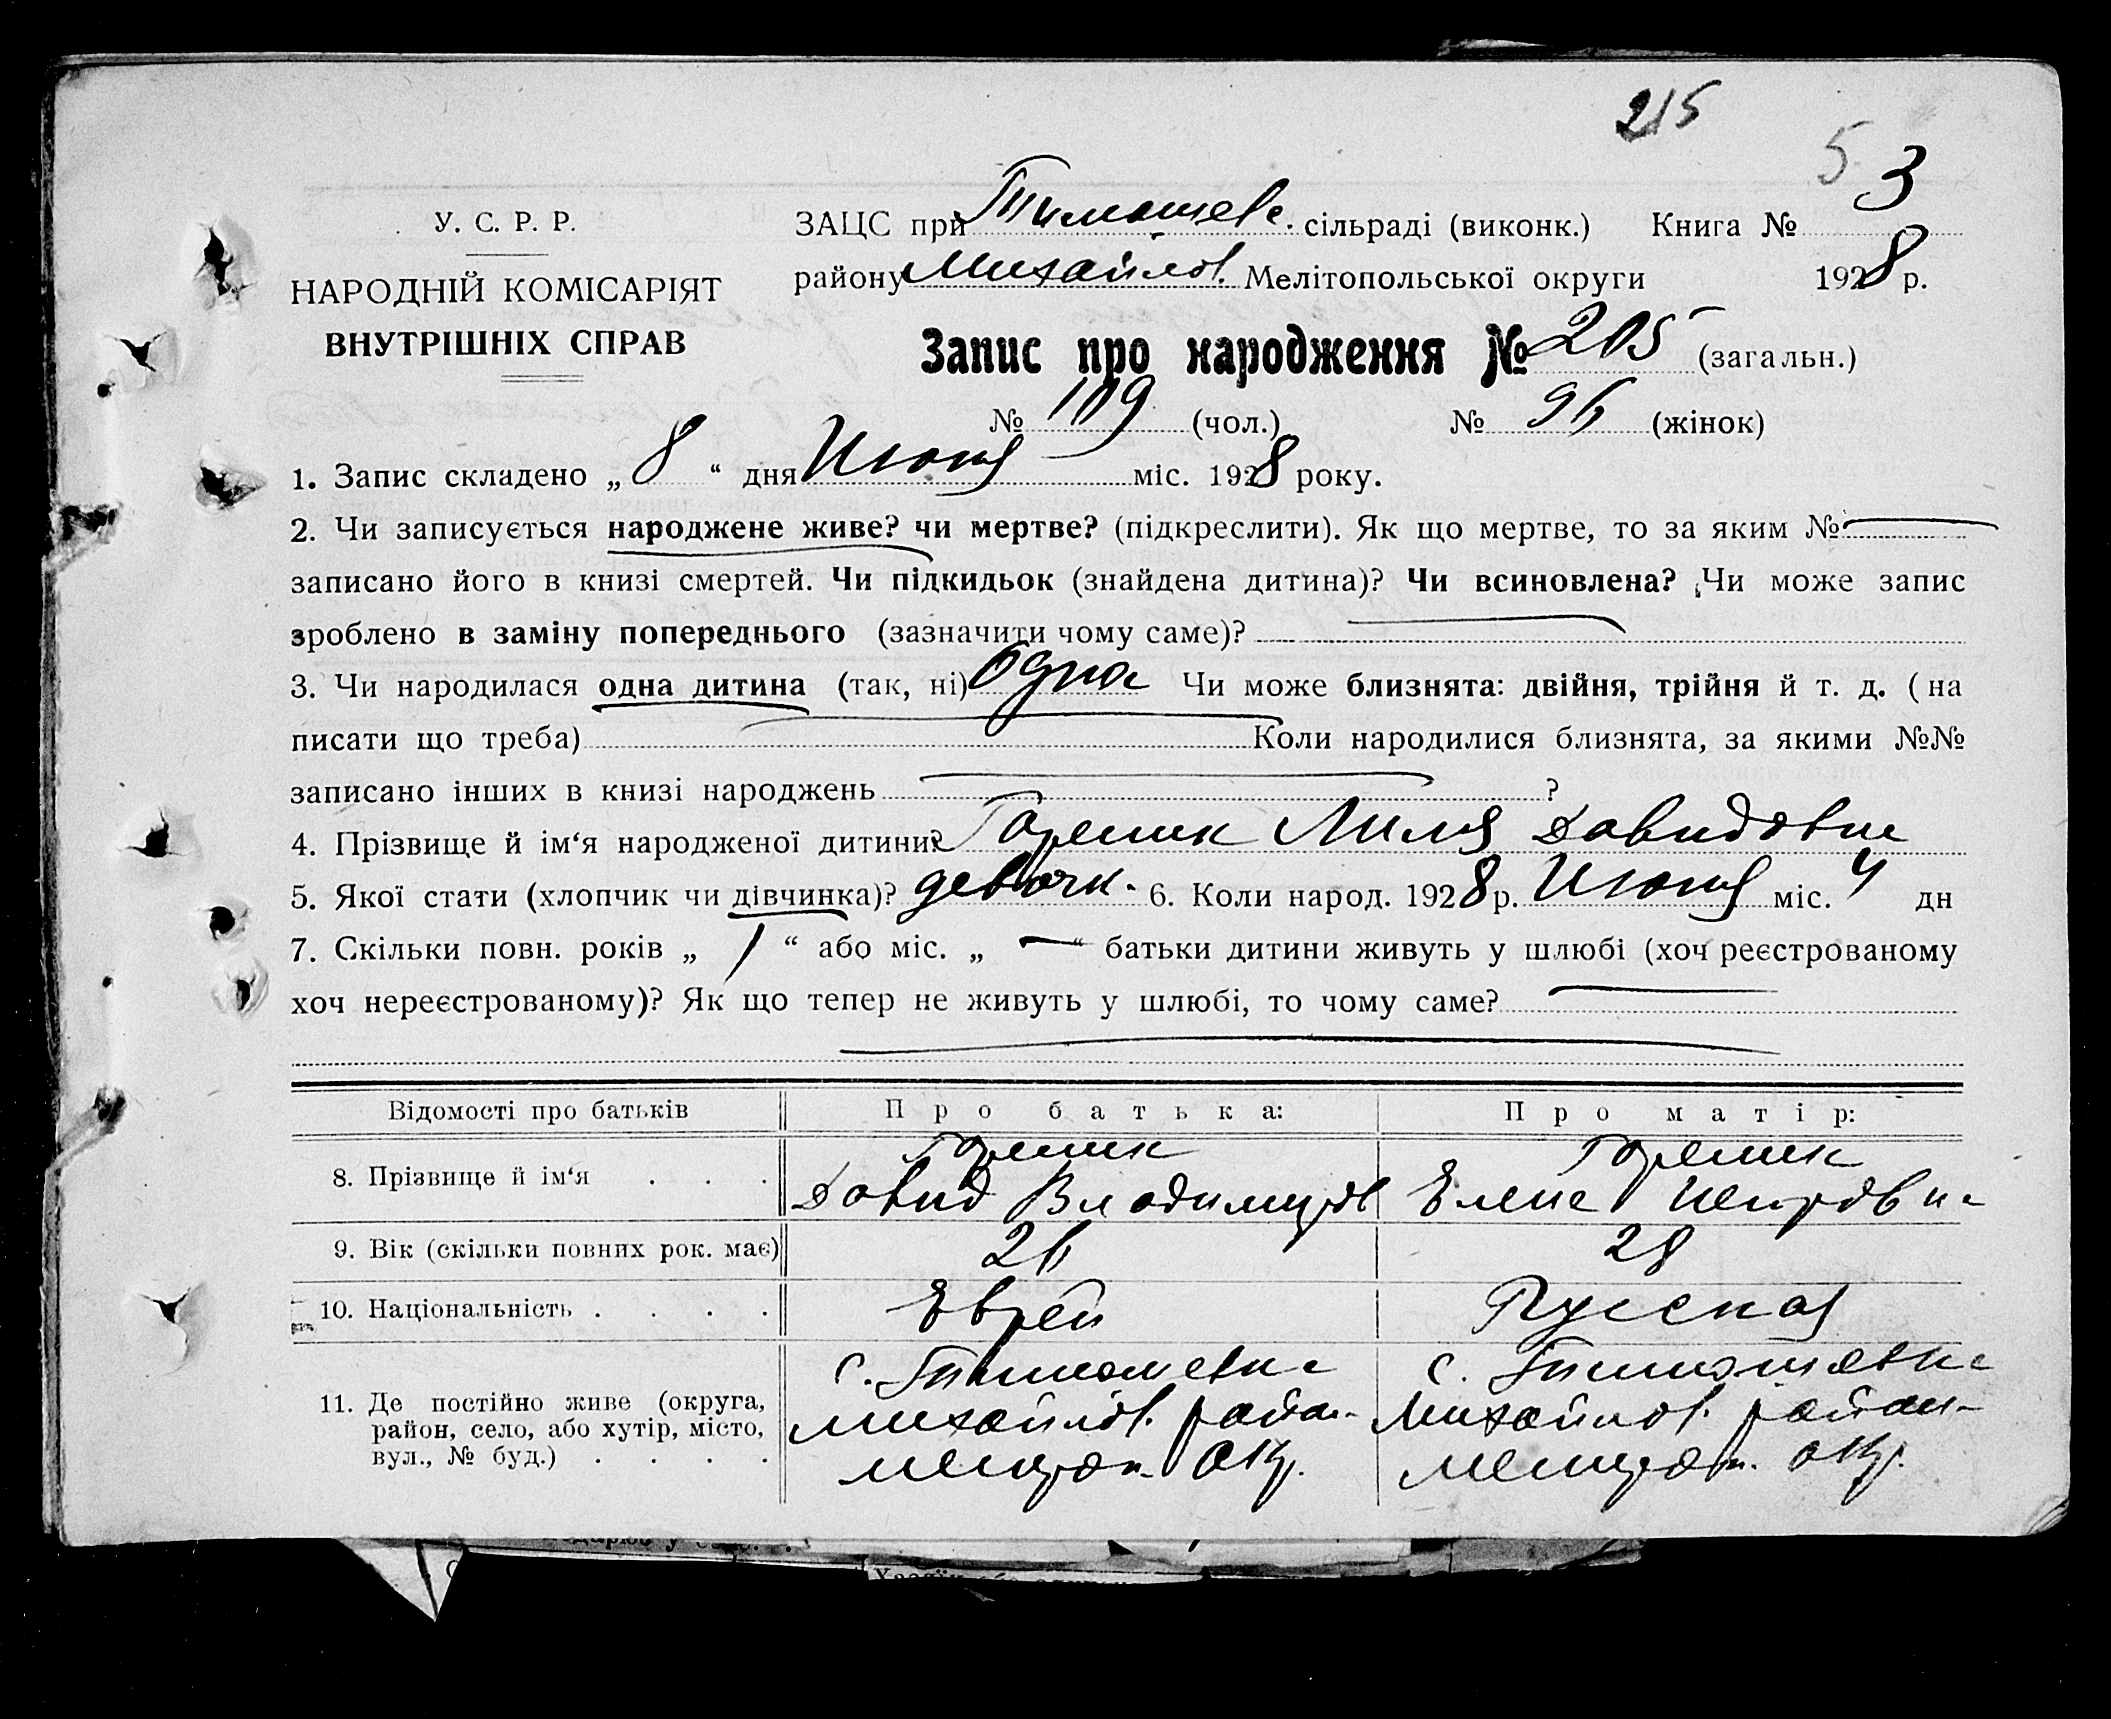 215
5 3
У. С. Р. Р.
НАРОДНІЙ КОМІСАРІЯТ
ВНУТРІШНІХ СПРАВ
ЗАЦС при Тимошев. сільраді (виконк.) Книга №
району Михайлов. Мелітопольської округи 1928 р.
Запис про народження № 205 (загальн.)
№ 109 (чол.) № 96 (жінок)
1. Запис складено „ 8 “ дня Июня міс. 1928 року.
2. Чи записується народжене живе? чи мертве? (підкреслити). Як що мертве, то за яким №
записано його в книзі смертей. Чи підкидьок (знайдена дитина)? Чи всиновлена? Чи може запис
зроблено в заміну попереднього (зазначити чому саме)?
3. Чи народилася одна дитина (так, ні) Одна Чи може близнята: двійня, трійня й т. д. (на
писати що треба) Коли народилися близнята, за якими №№
записано інших в книзі народжень ?
4. Прізвище й ім‘я народженої дитини? Горелик Лиля Давидовна
5. Якої стати (хлопчик чи дівчинка)? девочк. 6. Коли народ. 1928 р. Июня міс. 4 дн
7. Скільки повн. років „ 1 “ або міс. „ — “ батьки дитини живуть у шлюбі (хоч реєстрованому
хоч нереєстрованому)? Як що тепер не живуть у шлюбі, то чому саме?
Відомості про батьків Про батька: Про матір:
8. Прізвище й ім‘я . . . Горелик Давид Владимиров Горелик Елена Петровна
9. Вік (скільки повних рок. має) 26 28
10. Національність . . . . Еврей Русская
11. Де постійно живе (округа, с. Тимошевка с. Тимошевка
район, село, або хутір, місто, Михайлов. район Михайлов. район
вул., № буд.) . . . . Мелитоп. окр. Мелитоп. окр.